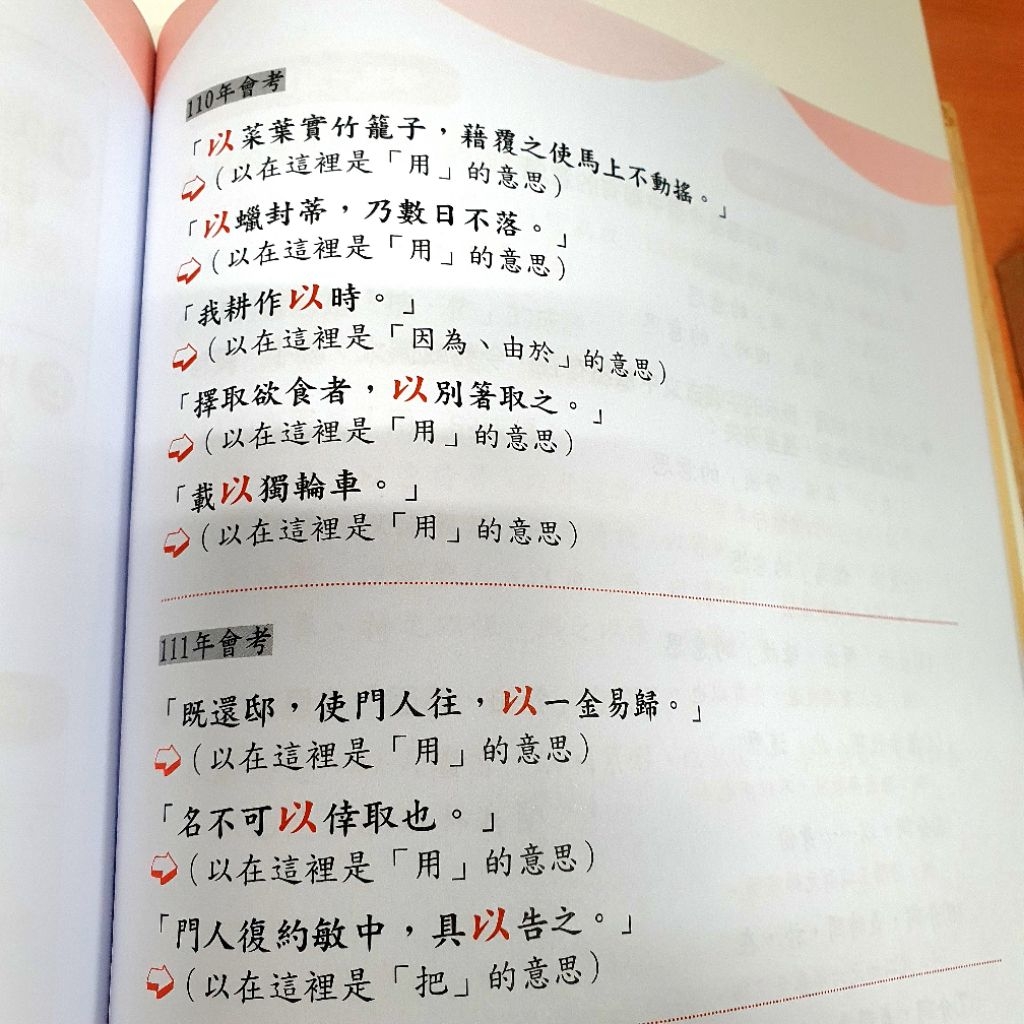 110年會考
「以菜葉實竹籠子，藉覆之使馬上不動搖。」
（以在這裡是「用」的意思）
「以蠟封蒂，乃數日不落。」
（以在這裡是「用」的意思）
「我耕作以時。」
（以在這裡是「因為、由於」的意思）
「擇取欲食者，以別箸取之。」
（以在這裡是「用」的意思）
「載以獨輪車。」
（以在這裡是「用」的意思）
111年會考
「既還邸，使門人往，以一金易歸。」
（以在這裡是「用」的意思）
「名不可以倖取也。」
（以在這裡是「用」的意思）
「門人復約敏中，具以告之。」
（以在這裡是「把」的意思）